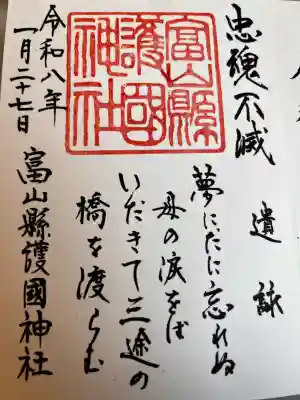 忠魂不滅
遺詠
夢にだに忘れぬ
母の涙をば
いだきて三途の
橋を渡らむ
富山縣護國神社
富山縣護國神社
令和八年
一月二十七日